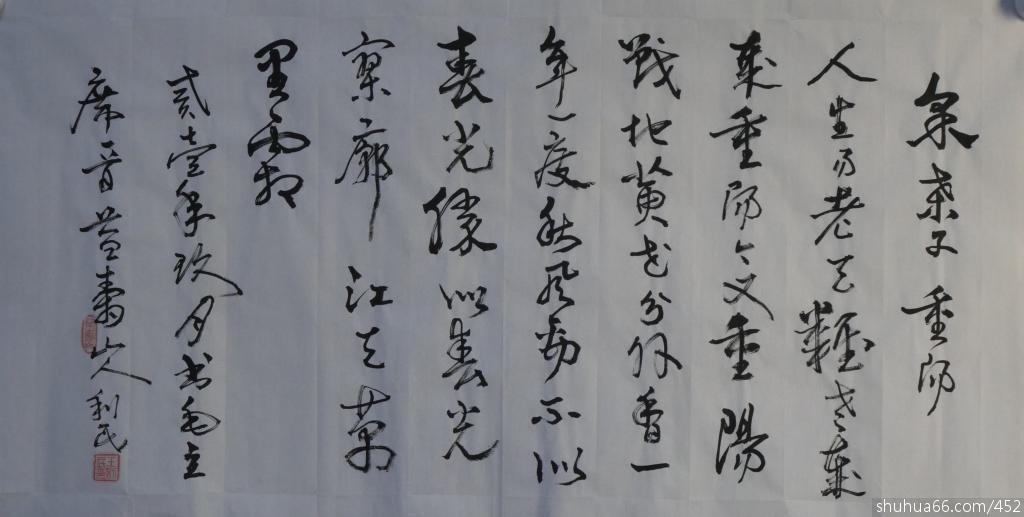 采桑子 重阳
人生易老天难老岁岁
重阳今又重陽
战地黄花分外香一
年一度秋风劲不似
春光勝似春光
寥廓江天萬
里霜
贰壹年玖月书毛主
席 山人利民
shuhua66.com/452